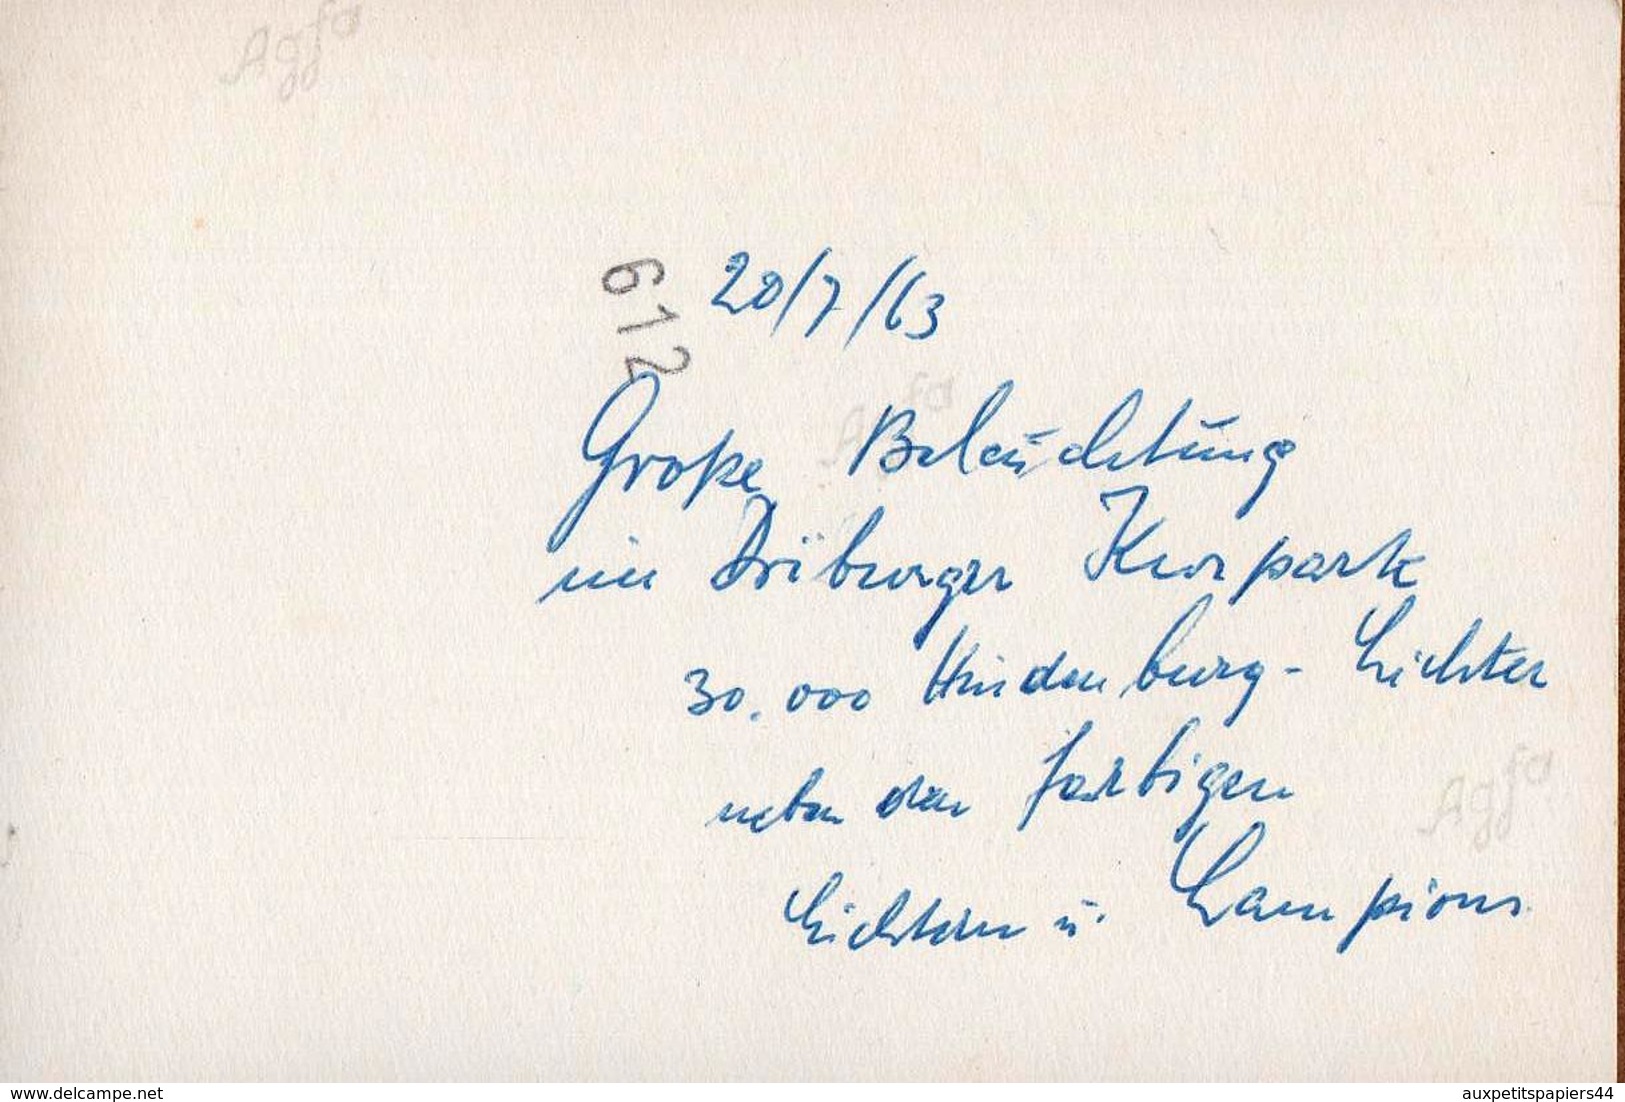 Agfa
612
20/7/63
Agfa
Große Beleuchtung
im Driburger Kurpark
30.000 Hindenburg-Lichter
neben den farbigen
Agfa
Lichtern u. Lampions
delcampe.net
auxpetitspapiers44